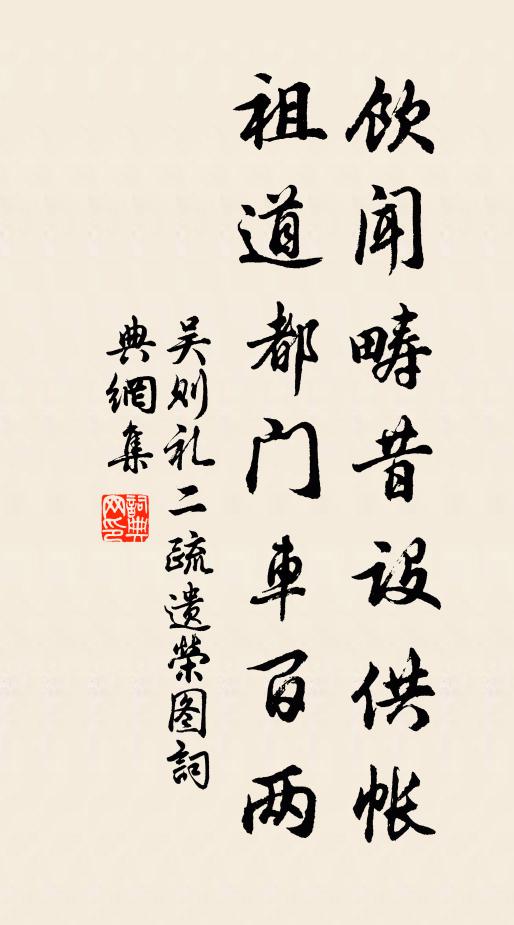 飲闻畴昔设供帐
祖道都门車百两
吴则礼二疏遗荣图詞
典網集
詞典網印